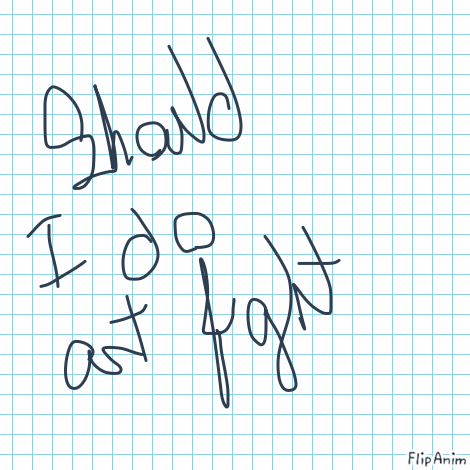 Should
I do
art fight
FlipAnim